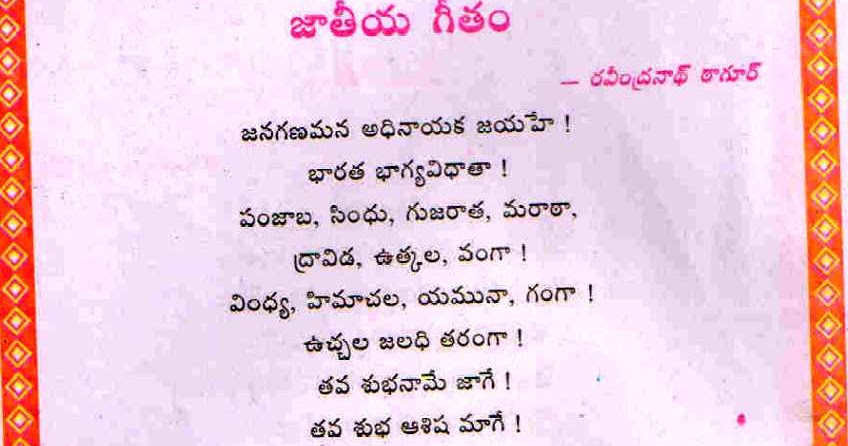 జాతీయ గీతం
– రవీంద్రనాథ్ ఠాగూర్
జనగణమన అధినాయక జయహే !
భారత భాగ్యవిధాతా !
పంజాబ, సింధు, గుజరాత, మరాఠా,
ద్రావిడ, ఉత్కల, వంగా !
వింధ్య, హిమాచల, యమునా, గంగా !
ఉచ్చల జలధి తరంగా !
తవ శుభనామే జాగే !
తవ శుభ ఆశిష మాగే !